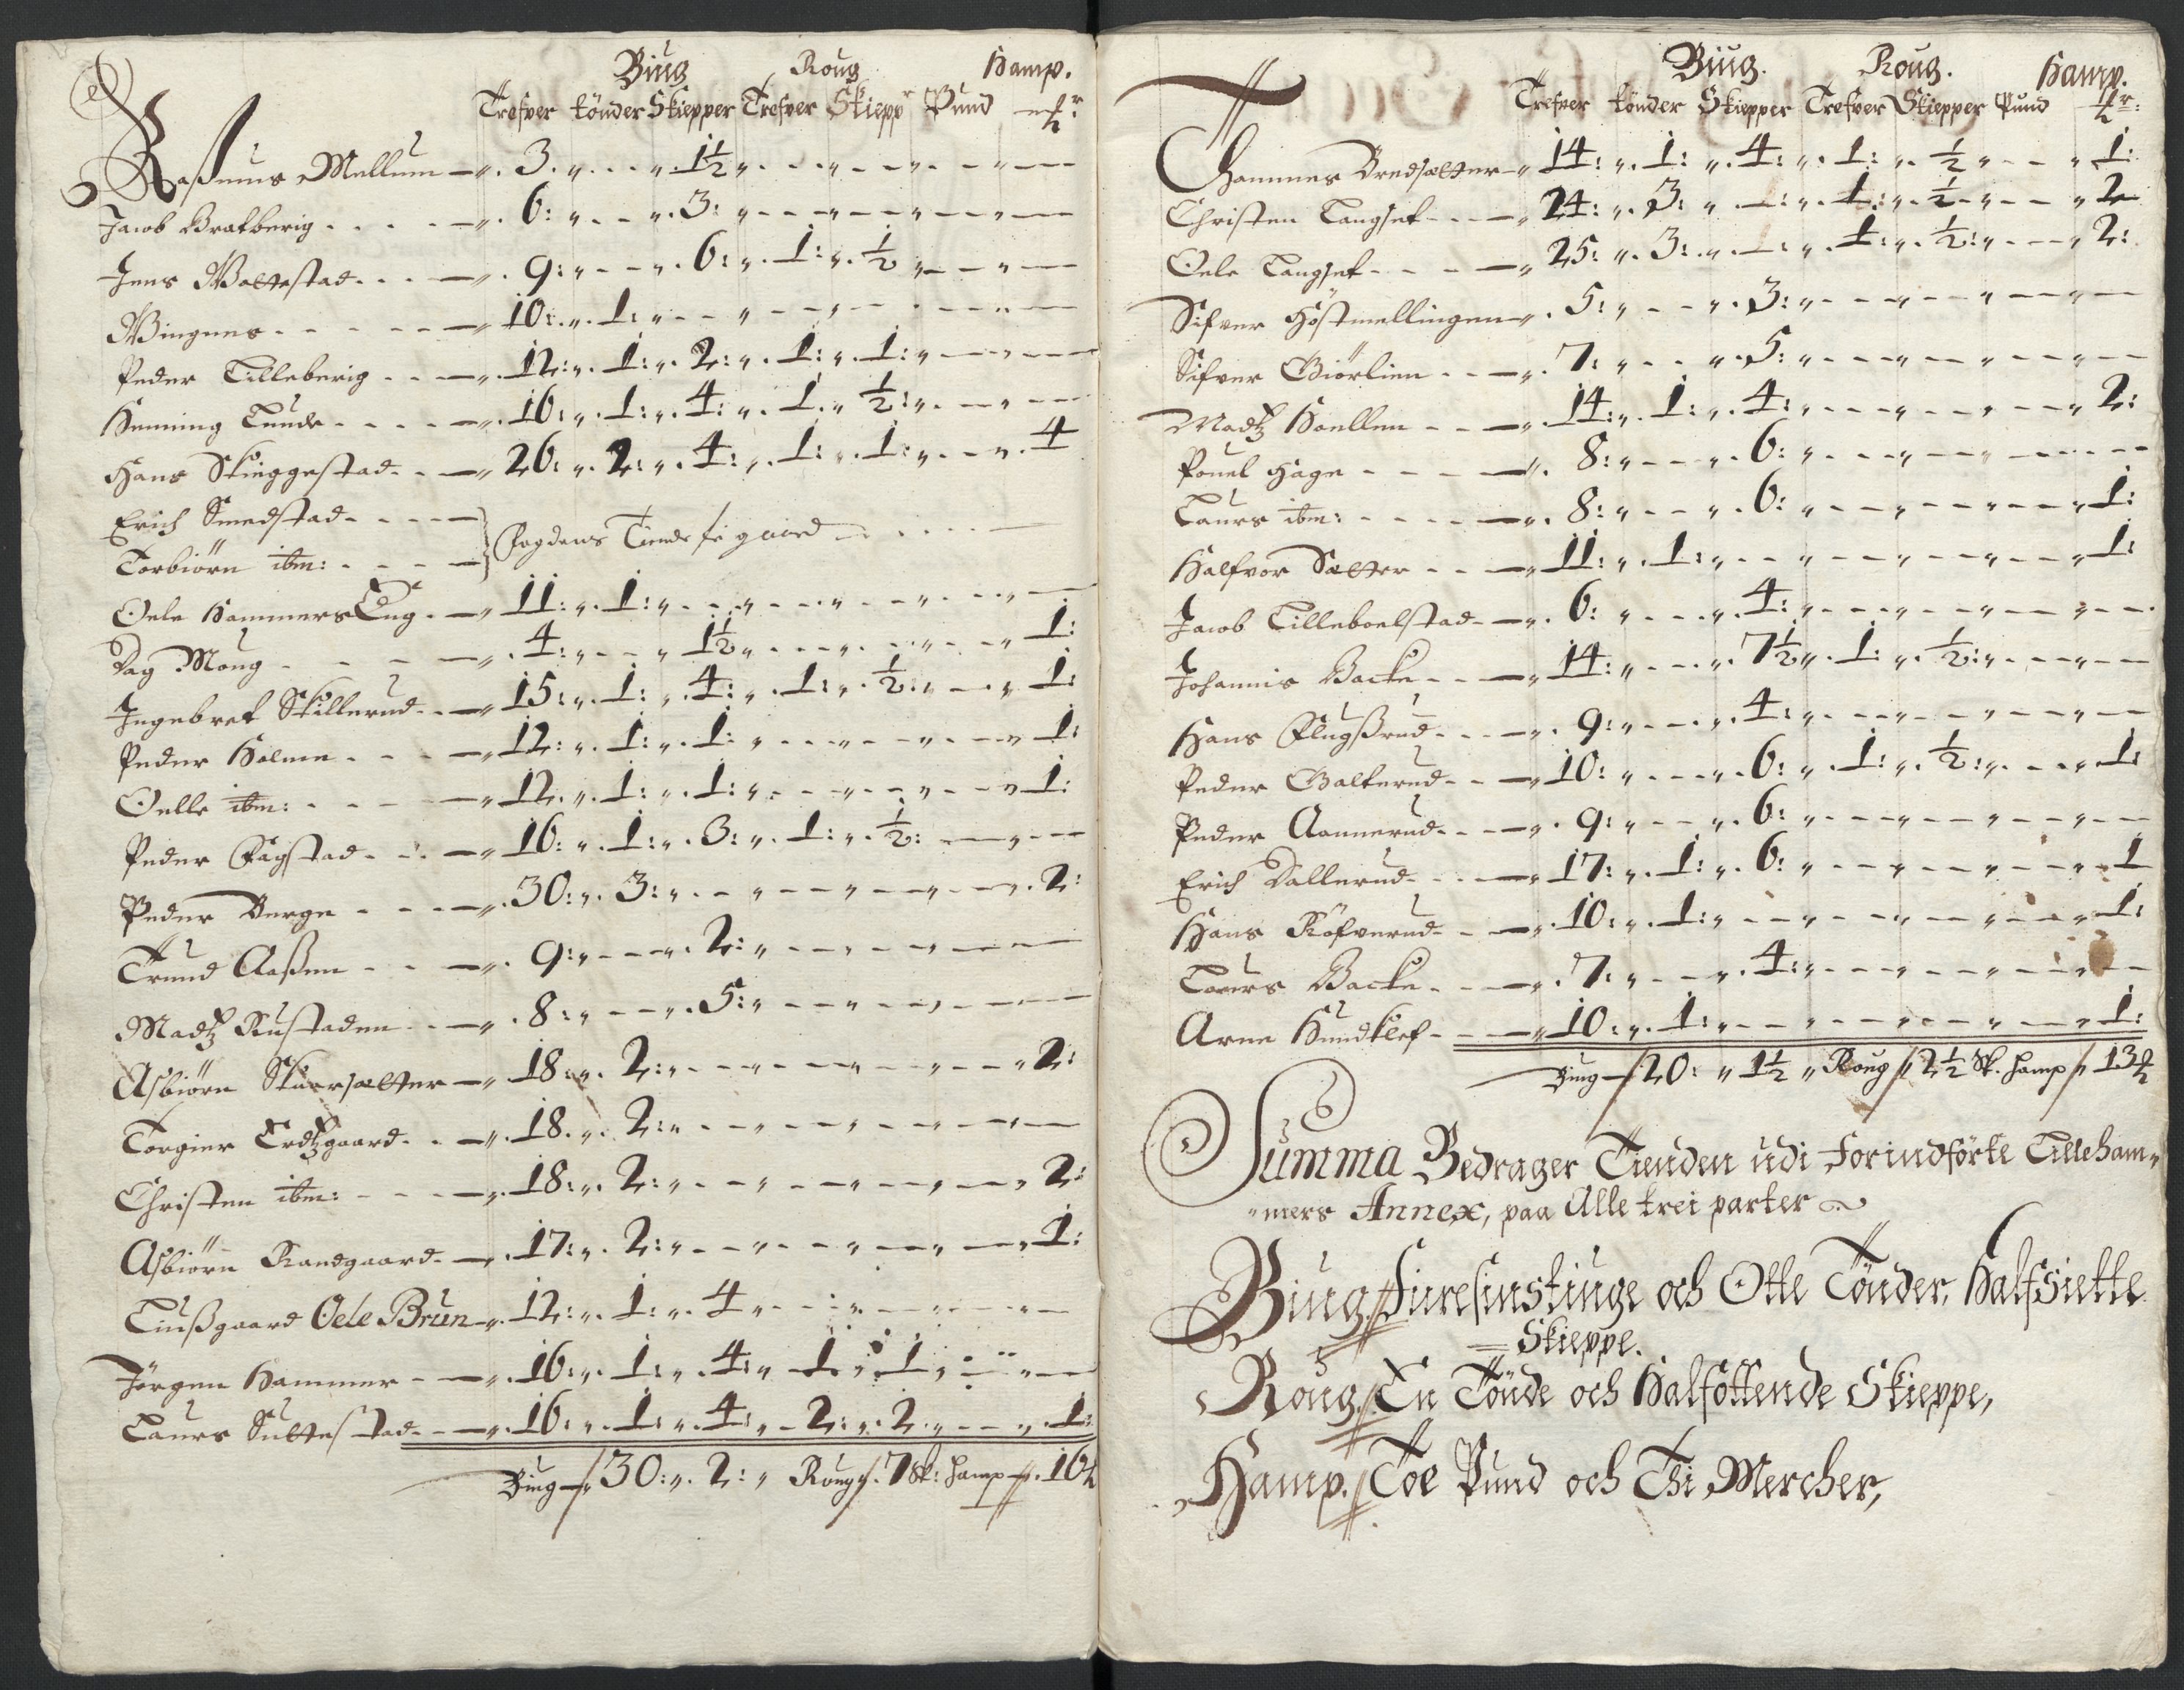 Biug Roug Hamp.
Trefver tönder Skiepper Trefver Skiepp Pund
Raßmus Mellum 3. 1½
Jacob Bratberig 6: 3:
Jens Woltestad 9: 6: 1: ½
Wingnes 10: 1:
Peder Lilleberig 12: 1: 2: 1: 1:
Henning Lunde 16: 1: 4: 1. ½:
Hans Skieggestad 26: 2: 4: 1: 1: 4
Erich Smedstad
Torbiörn ibm: Fogdens Tiende fri gaard
Oele HammersEng 11: 1:
Dag Moug 4: 1½ 1:
Ingebret Skillerud 15: 1: 4: 1: ½: 1:
Peder Holme 12: 1: 1: 1:
Oelle ibm: 12. 1: 1: 1:
Peder Fagstad 16: 1: 3: 1: ½:
Peder Berge 30: 3: 2:
Trund Aaßen 9: 2:
Madtz Rustaden 8: 5:
Asbiörn Skurrsætter 18: 2: 2:
Torgier Erdtzgaard 18. 2:
Christen ibm: 18: 2: 2:
Asbiörn Randgaard 17: 2: 1:
Liußgaard Oele Brun 12: 1: 4
Jörgen Hammer 16: 1: 4: 1 1
Laurs Sultestad 16: 1: 4: 2: 2. 1:
Biug 30: 2: Roug 7 Sk: Hamp 16
Biug. Roug. Hamp.
Trefver tönder Skiepper Trefver Skiepper Pund
Hammer Bredsætter 14: 1: 4: 1: ½ 1:
Christen Langset 24: 3: 1: ½ 2
Oele Langset 25: 3: 1: ½: 2:
Sifver Höstmellingen 5: 3:
Sifver Giörlien 7: 5:
Madtz Hoellen 14: 1: 4: 2:
Pouel Hage 8: 6:
Laurs ibm: 8: 6: 1:
Halfvor Sætter 11: 1: 1:
Jacob Lilleboelstad 6: 4:
Johannis Backe 14: 7½ 1: ½:
Hans Flugßrud 9: 4:
Peder Galterud 10: 6: 1: ½: 1:
Peder Aannerud 9: 6:
Erich Dallerud 17: 1: 6: 1
Hans Röfverud 10: 1: 1:
Laurs Backe 7: 4:
Arne Hundklef 10: 1: 1:
Biug 20: 1½ Roug 2½ Sk. Hamp 13
Summa Bedrager Tienden udi Forindförte Lilleham
mers Annex, paa Alle trei parter
Biug. Fiiresinstiuge och Otte Tönder, Halfsiette
Skieppe.
Roug. En Tönde och Halfottende Skieppe,
Hamp. Toe Pund och Thi Mercher,